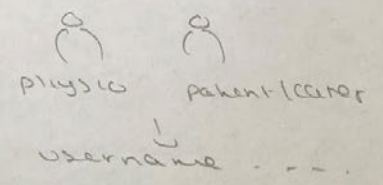 physio patient/carer
username - - - .